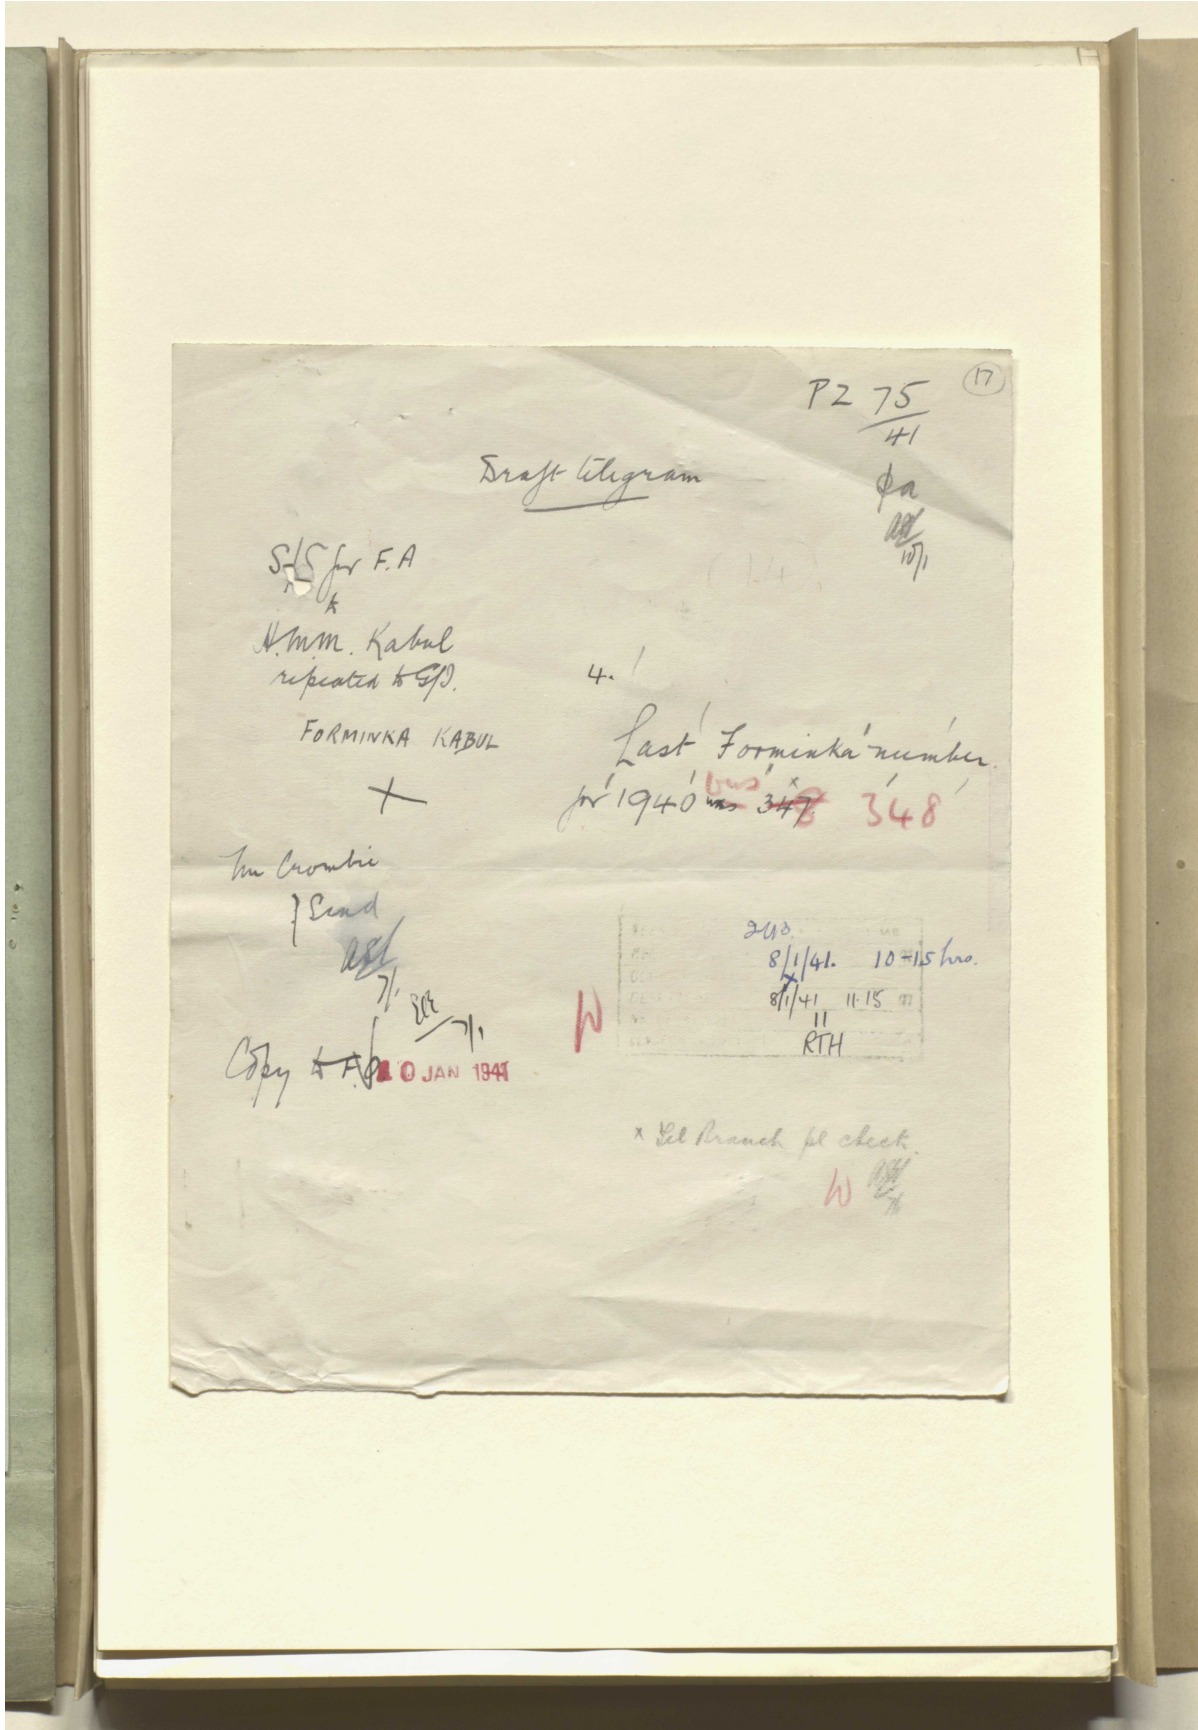 17
PZ 75
41
Draft telegram
pa
10/1
S/S for F.A
to
H.M.M. Kabul
repeated to G/I.
FORMINKA KABUL
4.
Last Forminka number
for 1940 was was 347 348
Mr Crombie
} Send
7/1
7/1
Copy to F.O.
10 JAN 1941
8/1/41. 10-15 hrs.
8/1/41 11.15
RTH
x Tel Branch pl check.
7/1